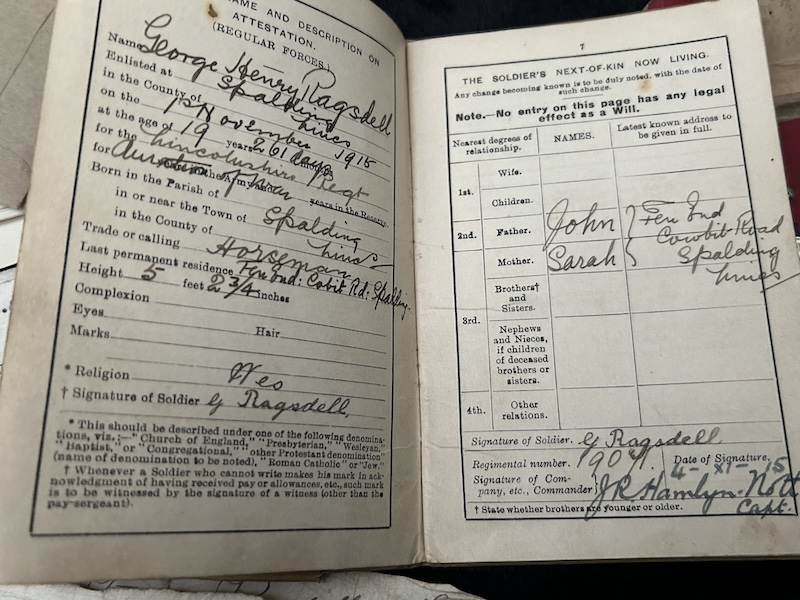 NAME AND DESCRIPTION ON
ATTESTATION.
(REGULAR FORCES.)
Name George Henry Ragsdell
Enlisted at Spalding
in the County of Lincs
on the 1st November 1915
at the age of 19 years 261 days
for the Lincolnshire Regt
for duration of war years in the Reserve.
Born in the Parish of
in or near the Town of Spalding
in the County of Lincs
Trade or calling Horseman
Last permanent residence Fen End: Cobit Rd: Spalding.
Height 5 feet 2 3/4 inches
Complexion
Eyes Hair
Marks
* Religion Wes
† Signature of Soldier G Ragsdell.
* This should be described under one of the following denomina-
tions, viz.:—"Church of England," "Presbyterian," "Wesleyan,"
"Baptist," or "Congregational," "other Protestant denomination"
(name of denomination to be noted), "Roman Catholic" or "Jew."
† Whenever a Soldier who cannot write makes his mark in ack-
nowledgment of having received pay or allowances, etc., such mark
is to be witnessed by the signature of a witness (other than the
pay-sergeant).
7
THE SOLDIER'S NEXT-OF-KIN NOW LIVING.
Any change becoming known is to be duly noted, with the date of
such change.
Note.—No entry on this page has any legal
effect as a Will.
Nearest degrees of
relationship.
NAMES.
Latest known address to
be given in full.
1st.
Wife.
Children.
2nd.
Father. John
Mother. Sarah
Fen End
Cowbit Road
Spalding
Lincs
3rd.
Brothers†
and
Sisters.
Nephews
and Nieces,
if children
of deceased
brothers or
sisters.
4th.
Other
relations.
Signature of Soldier. G Ragsdell
Regimental number.
Date of Signature,
4-XI-15
Signature of Com-
pany, etc., Commander J R Hamlyn-Nott
Capt.
† State whether brothers are younger or older.